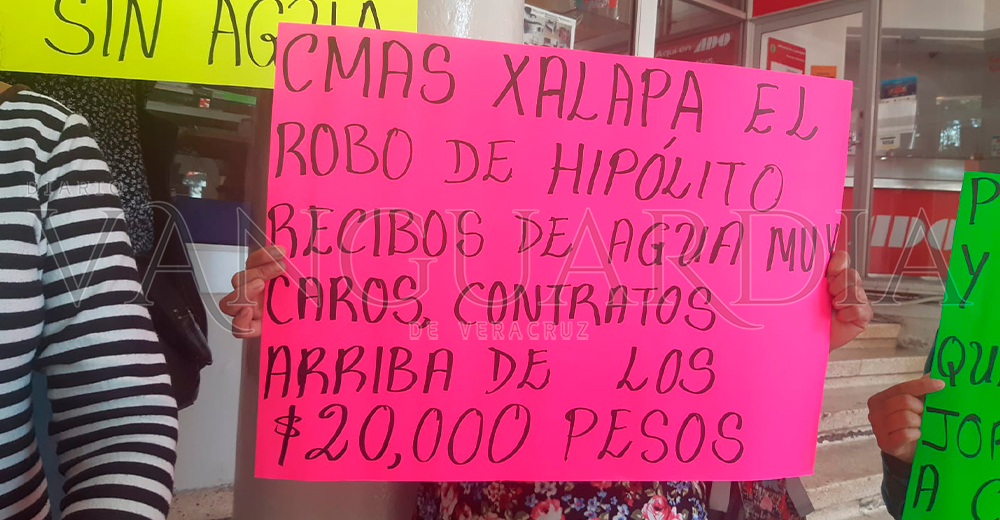 SIN AGUA
CMAS XALAPA EL
ROBO DE HIPÓLITO
RECIBOS DE AGUA MUY
CAROS, CONTRATOS
ARRIBA DE LOS
$20,000 PESOS
DIARIO
VANGUARDIA
DE VERACRUZ
ADO
P
Y
QU
JOR
A